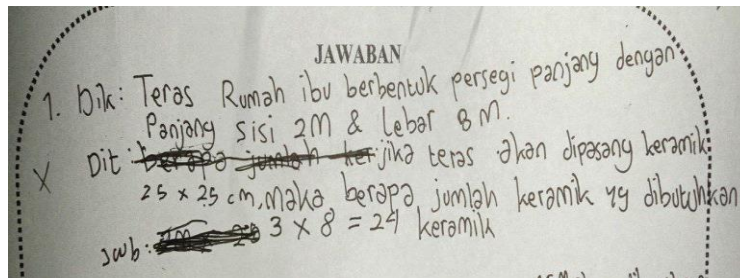 JAWABAN
1. Dik: Teras Rumah ibu berbentuk persegi panjang dengan
Panjang sisi 2M & Lebar 8 M.
X Dit: berapa jumlah ker jika teras akan dipasang keramik
25 x 25 cm, maka berapa jumlah keramik yg dibutuhkan
Jwb: 3 x 8 = 24 keramik